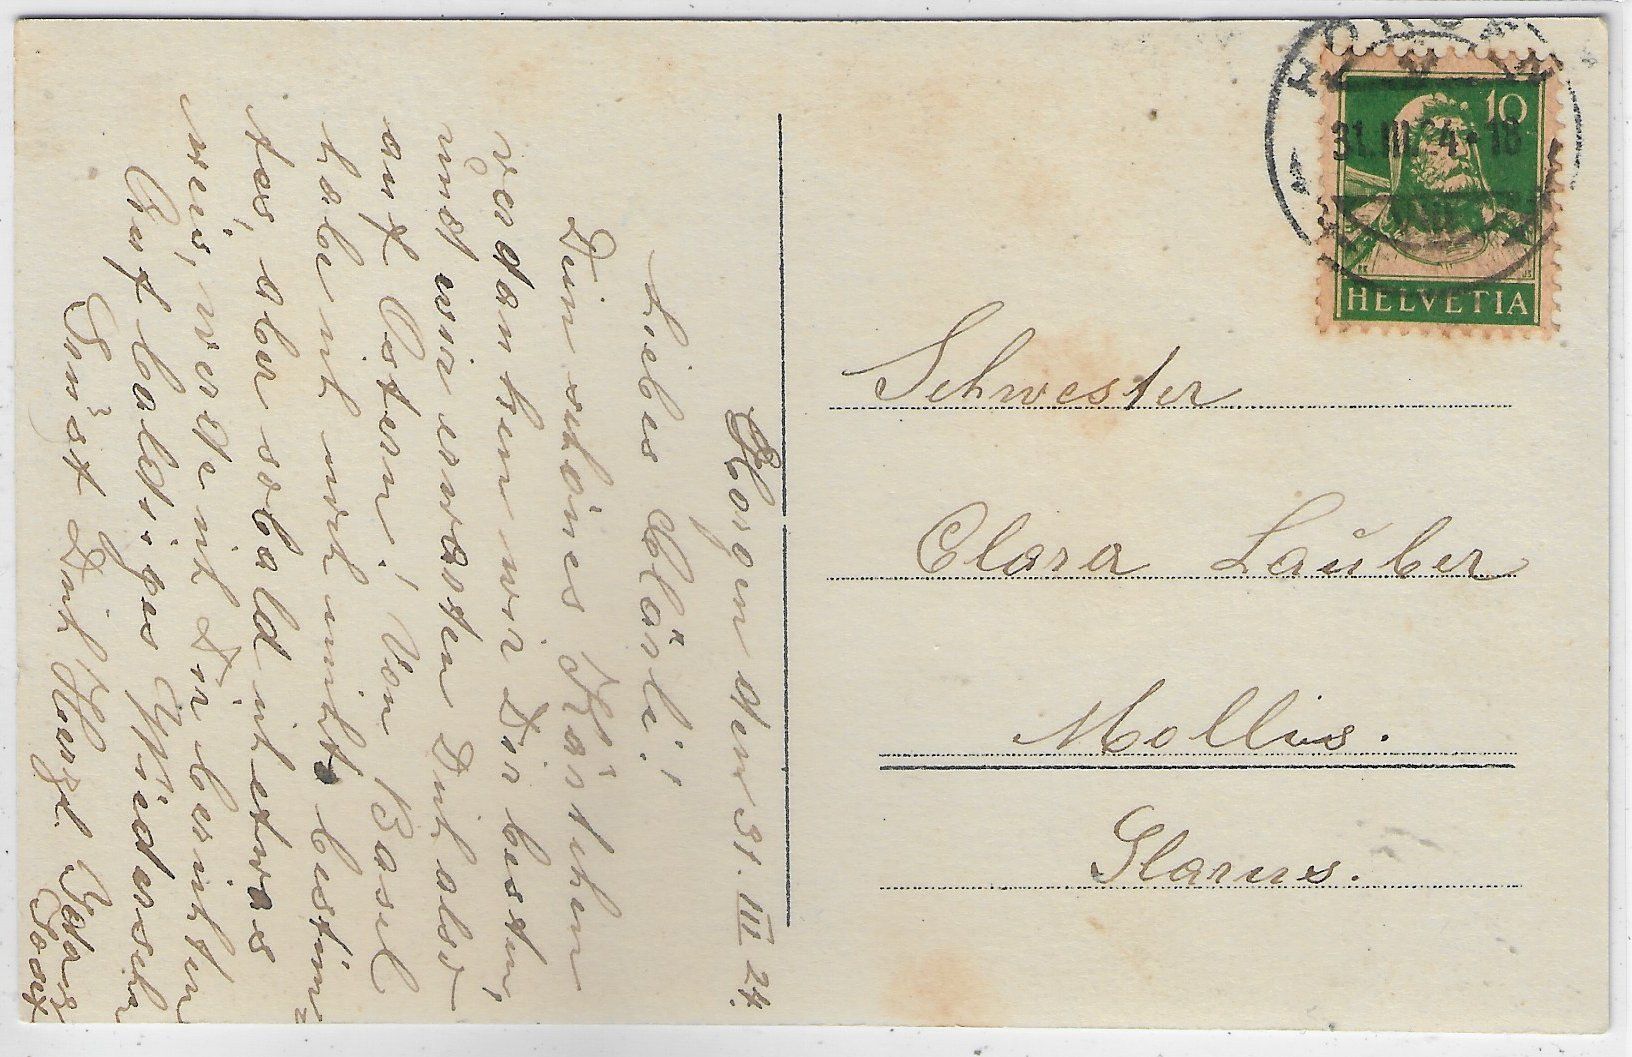 Horgen den 31. III 24.
Liebes Clärli!
Dein schönes Kärtchen
verdanken wir Dir bestens,
und wir erwarten Dich also
auf Ostern! Von Basel
habe ich noch nichts bestimm=
tes, aber sobald ich etwas
weis, werde ich Dir berichten
Auf baldiges Wiedersehn
Grüst Dich Herzl.
HORGEN
31.III.24-18
10
HELVETIA
Schwester
Clara Lauber
Mollis.
Glarus.